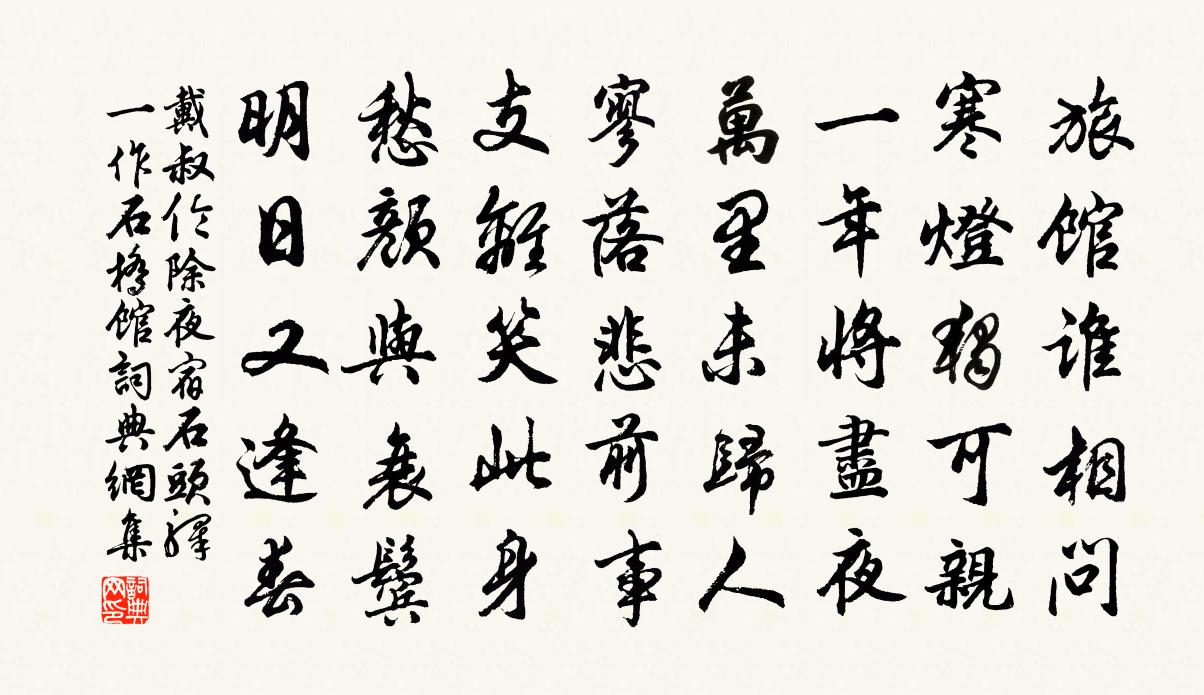 旅館誰相問
寒燈獨可親
一年將盡夜
萬里未歸人
寥落悲前事
支離笑此身
愁顏與衰鬢
明日又逢春
戴叔伦除夜宿石頭驛
一作石橋館詞典網集
詞典网印